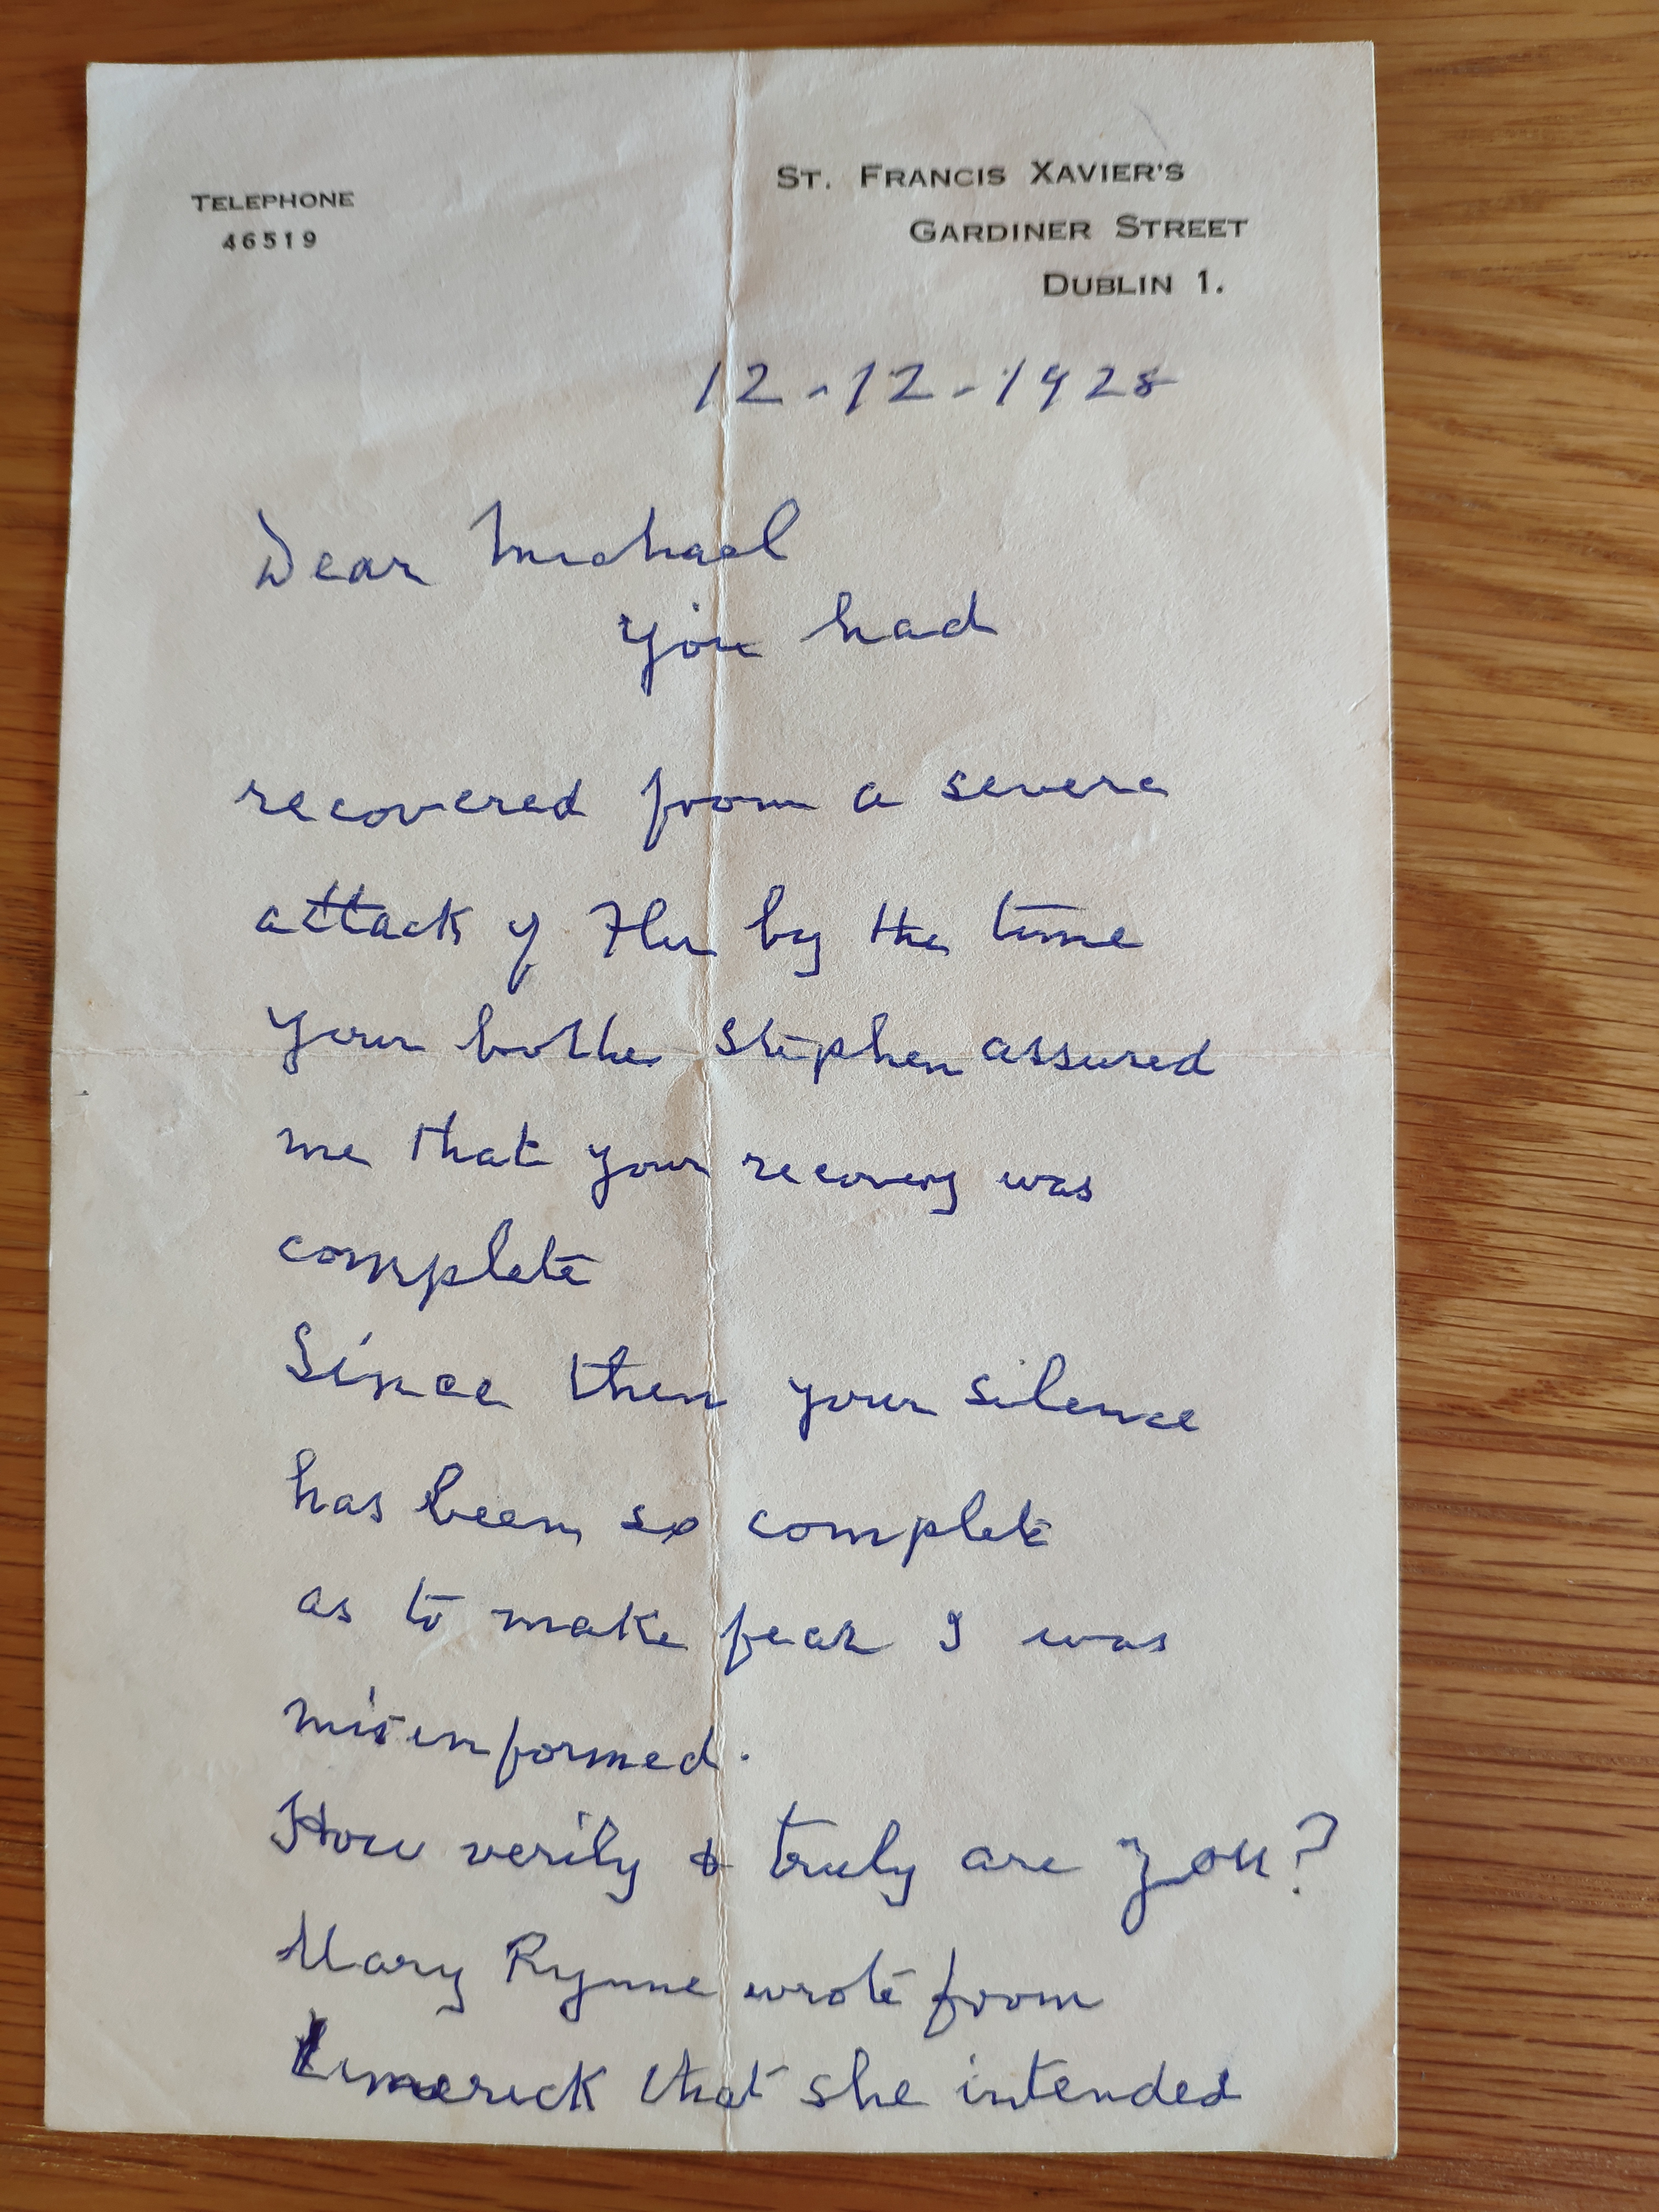 TELEPHONE
46519
ST. FRANCIS XAVIER'S
GARDINER STREET
DUBLIN 1.
12-12-1928
Dear Michael
you had
recovered from a severe
attack of Flu by the time
your brother Stephen assured
me that your recovery was
complete
Since then your silence
has been so complete
as to make fear I was
misinformed.
How verily & truly are you?
Mary Rynne wrote from
Limerick that she intended